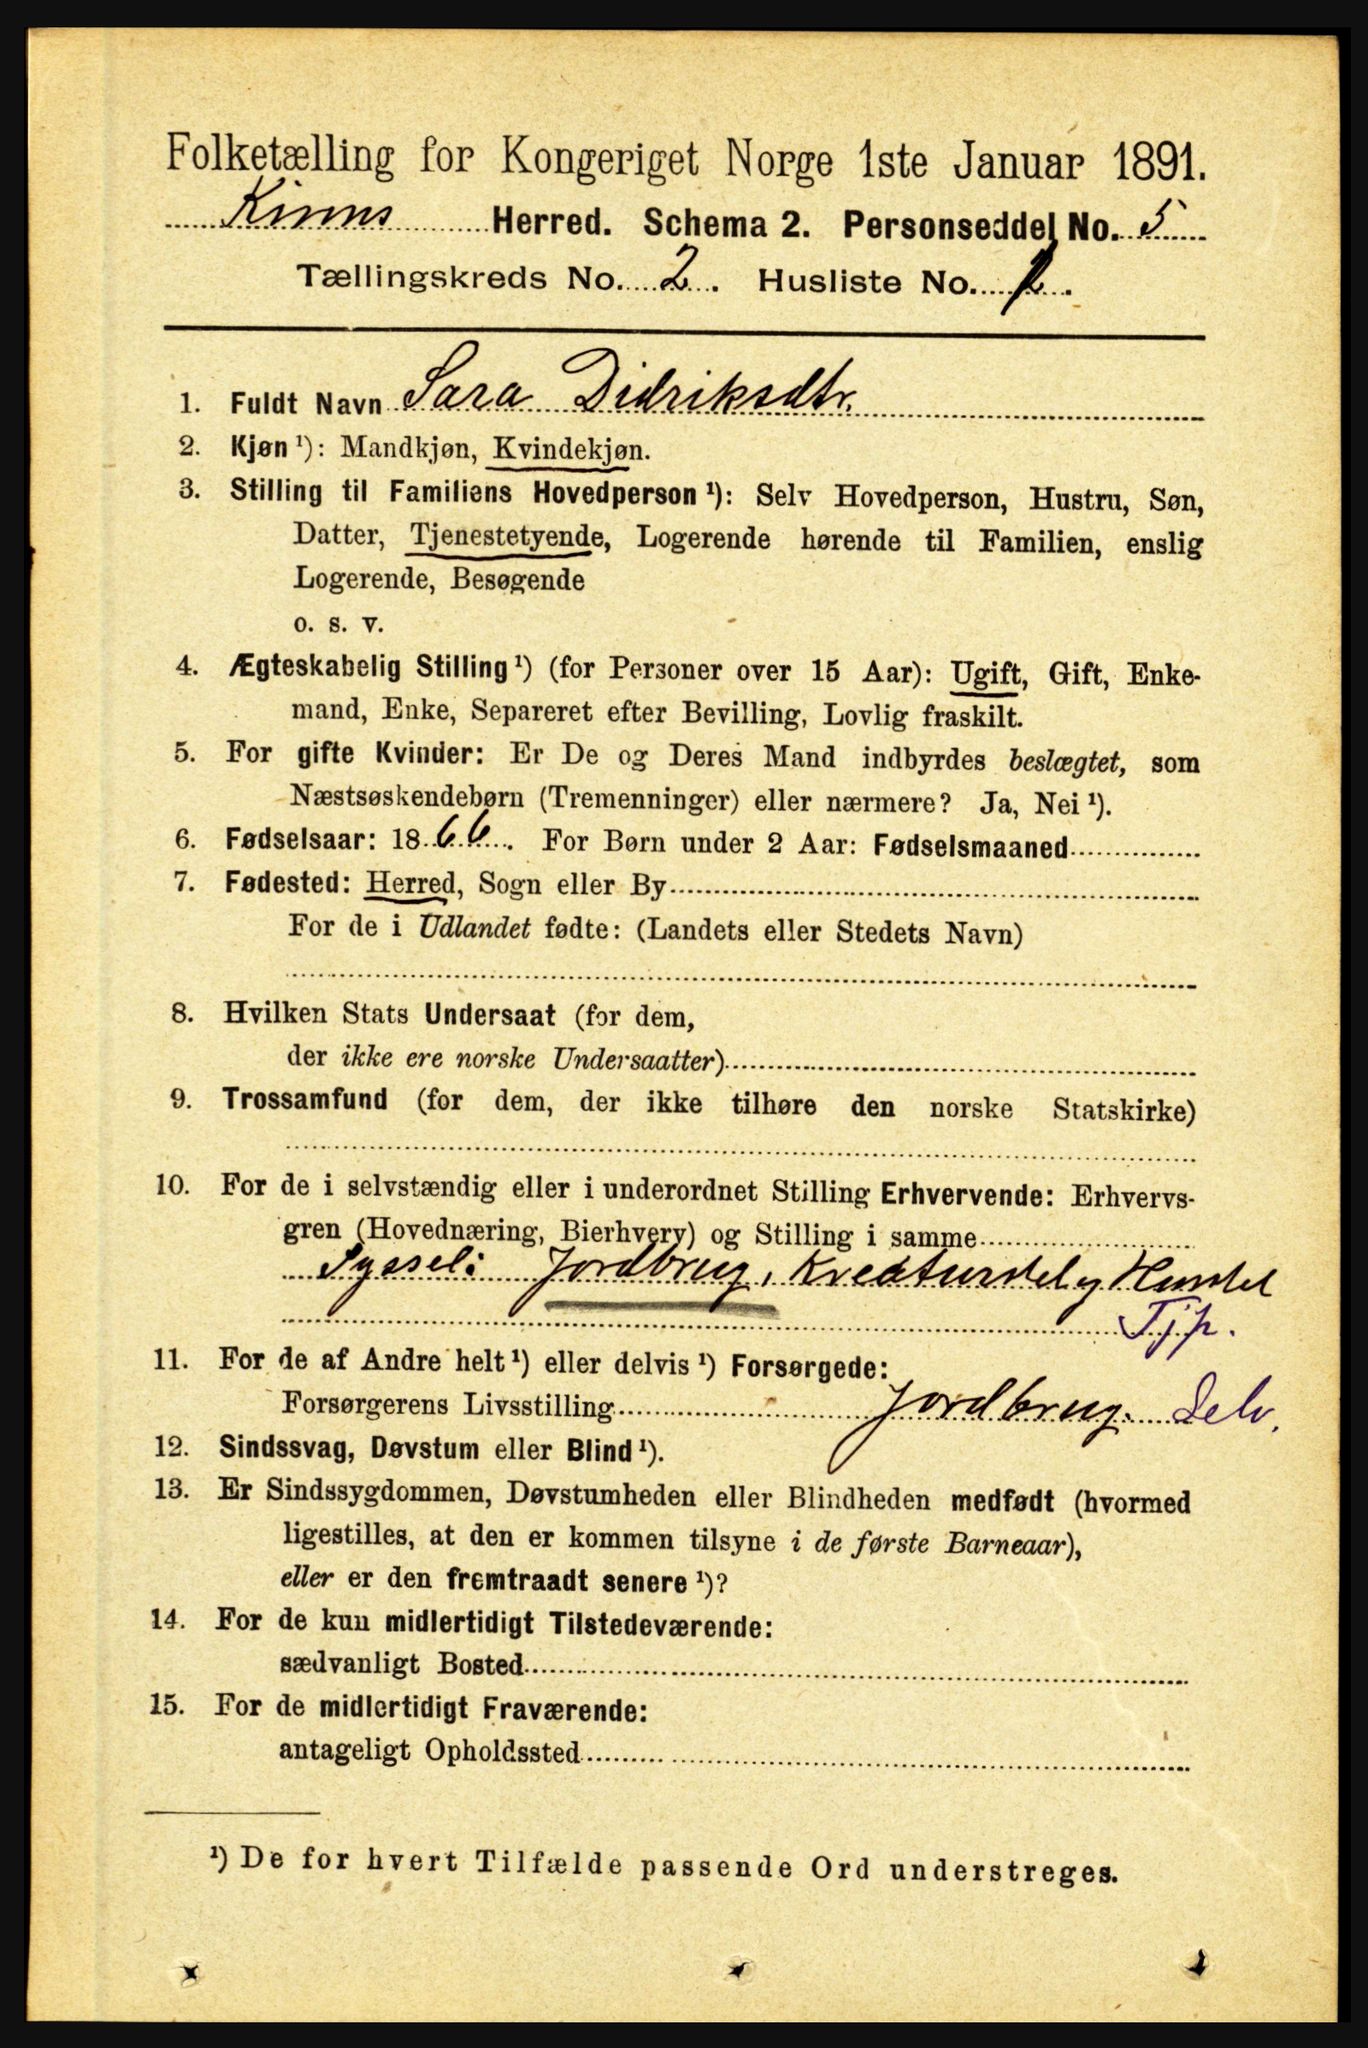 Folketælling for Kongeriget Norge 1ste Januar 1891.
Kinns Herred. Schema 2. Personseddel No. 5
Tællingskreds No. 2. Husliste No. 1.
1. Fuldt Navn Sara Didriksdtr.
2. Kjøn ¹): Mandkjøn, Kvindekjøn.
3. Stilling til Familiens Hovedperson ¹): Selv Hovedperson, Hustru, Søn,
Datter, Tjenestetyende, Logerende hørende til Familien, enslig
Logerende, Besøgende
o. s. v.
4. Ægteskabelig Stilling ¹) (for Personer over 15 Aar): Ugift, Gift, Enke-
mand, Enke, Separeret efter Bevilling, Lovlig fraskilt.
5. For gifte Kvinder: Er De og Deres Mand indbyrdes beslægtet, som
Næstsøskendebørn (Tremenninger) eller nærmere? Ja, Nei ¹).
6. Fødselsaar: 1866. For Børn under 2 Aar: Fødselsmaaned
7. Fødested: Herred, Sogn eller By
For de i Udlandet fødte: (Landets eller Stedets Navn)
8. Hvilken Stats Undersaat (for dem,
der ikke ere norske Undersaatter)
9. Trossamfund (for dem, der ikke tilhøre den norske Statskirke)
10. For de i selvstændig eller i underordnet Stilling Erhvervende: Erhvervs-
gren (Hovednæring, Bierhverv) og Stilling i samme
Syssel: Jordbrug, Kreaturstel og Husstel
Tjp.
11. For de af Andre helt ¹) eller delvis ¹) Forsørgede:
Forsørgerens Livsstilling Jordbrug. Selv.
12. Sindssvag, Døvstum eller Blind ¹).
13. Er Sindssygdommen, Døvstumheden eller Blindheden medfødt (hvormed
ligestilles, at den er kommen tilsyne i de første Barneaar),
eller er den fremtraadt senere ¹)?
14. For de kun midlertidigt Tilstedeværende:
sædvanligt Bosted
15. For de midlertidigt Fraværende:
antageligt Opholdssted
¹) De for hvert Tilfælde passende Ord understreges.